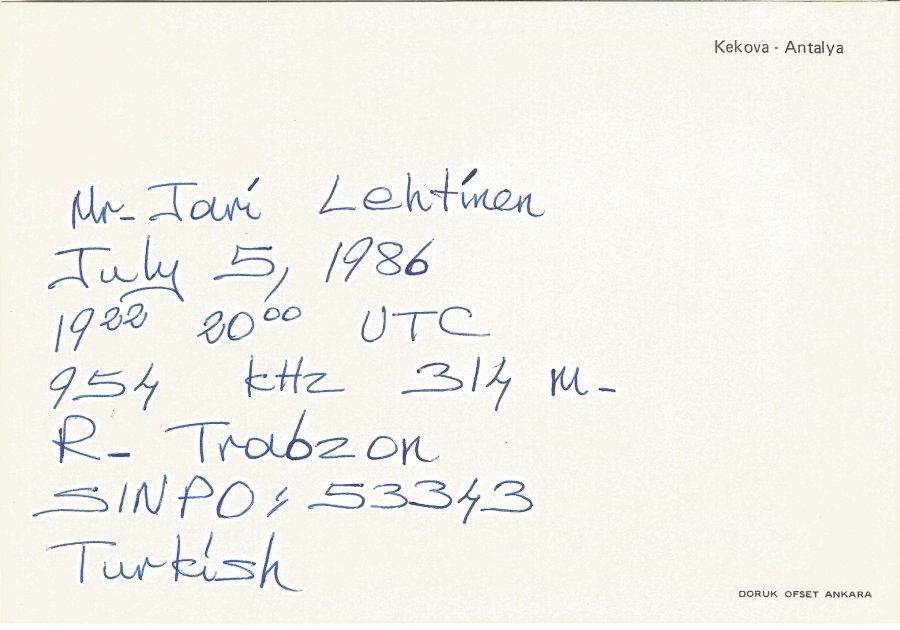 Kekova - Antalya
Mr- Jari Lehtinen
July 5, 1986
19²² 20⁰⁰ UTC
954 kHz 314 m-
R- Trabzon
SINPO: 53343
Turkish
DORUK OFSET ANKARA